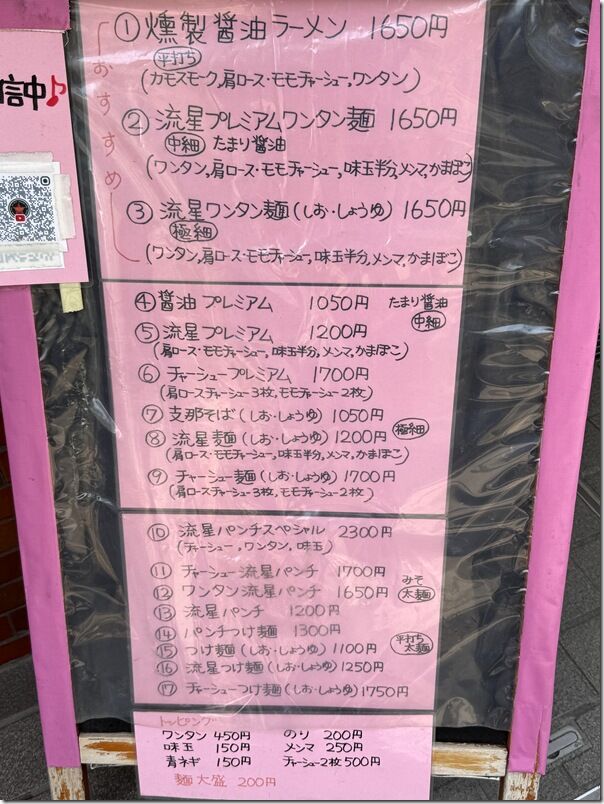 信中♪
おすすめ
① 燻製醤油ラーメン 1650円
平打ち
(カモスモーク,肩ロース・モモチャーシュー,ワンタン)
② 流星プレミアムワンタン麺 1650円
中細 たまり醤油
(ワンタン,肩ロース・モモチャーシュー,味玉半分,メンマ,かまぼこ)
③ 流星ワンタン麺(しお・しょうゆ) 1650円
極細
(ワンタン,肩ロース・モモチャーシュー,味玉半分,メンマ,かまぼこ)
④ 醤油プレミアム 1050円 たまり醤油
中細
⑤ 流星プレミアム 1200円
(肩ロース・モモチャーシュー,味玉半分,メンマ,かまぼこ)
⑥ チャーシュープレミアム 1700円
(肩ロースチャーシュー3枚,モモチャーシュー2枚)
⑦ 支那そば(しお・しょうゆ) 1050円
⑧ 流星麺(しお・しょうゆ) 1200円 極細
(肩ロース・モモチャーシュー,味玉半分,メンマ,かまぼこ)
⑨ チャーシュー麺(しお・しょうゆ) 1700円
(肩ロースチャーシュー3枚,モモチャーシュー2枚)
⑩ 流星パンチスペシャル 2300円
(チャーシュー,ワンタン,味玉)
⑪ チャーシュー流星パンチ 1700円 みそ
⑫ ワンタン流星パンチ 1650円 太麺
⑬ 流星パンチ 1200円
⑭ パンチつけ麺 1300円
⑮ つけ麺(しお・しょうゆ) 1100円 平打ち太麺
⑯ 流星つけ麺(しお・しょうゆ) 1250円
⑰ チャーシューつけ麺(しお・しょうゆ) 1750円
トッピング
ワンタン 450円 のり 200円
味玉 150円 メンマ 250円
青ネギ 150円 チャーシュー2枚 500円
麺大盛 200円